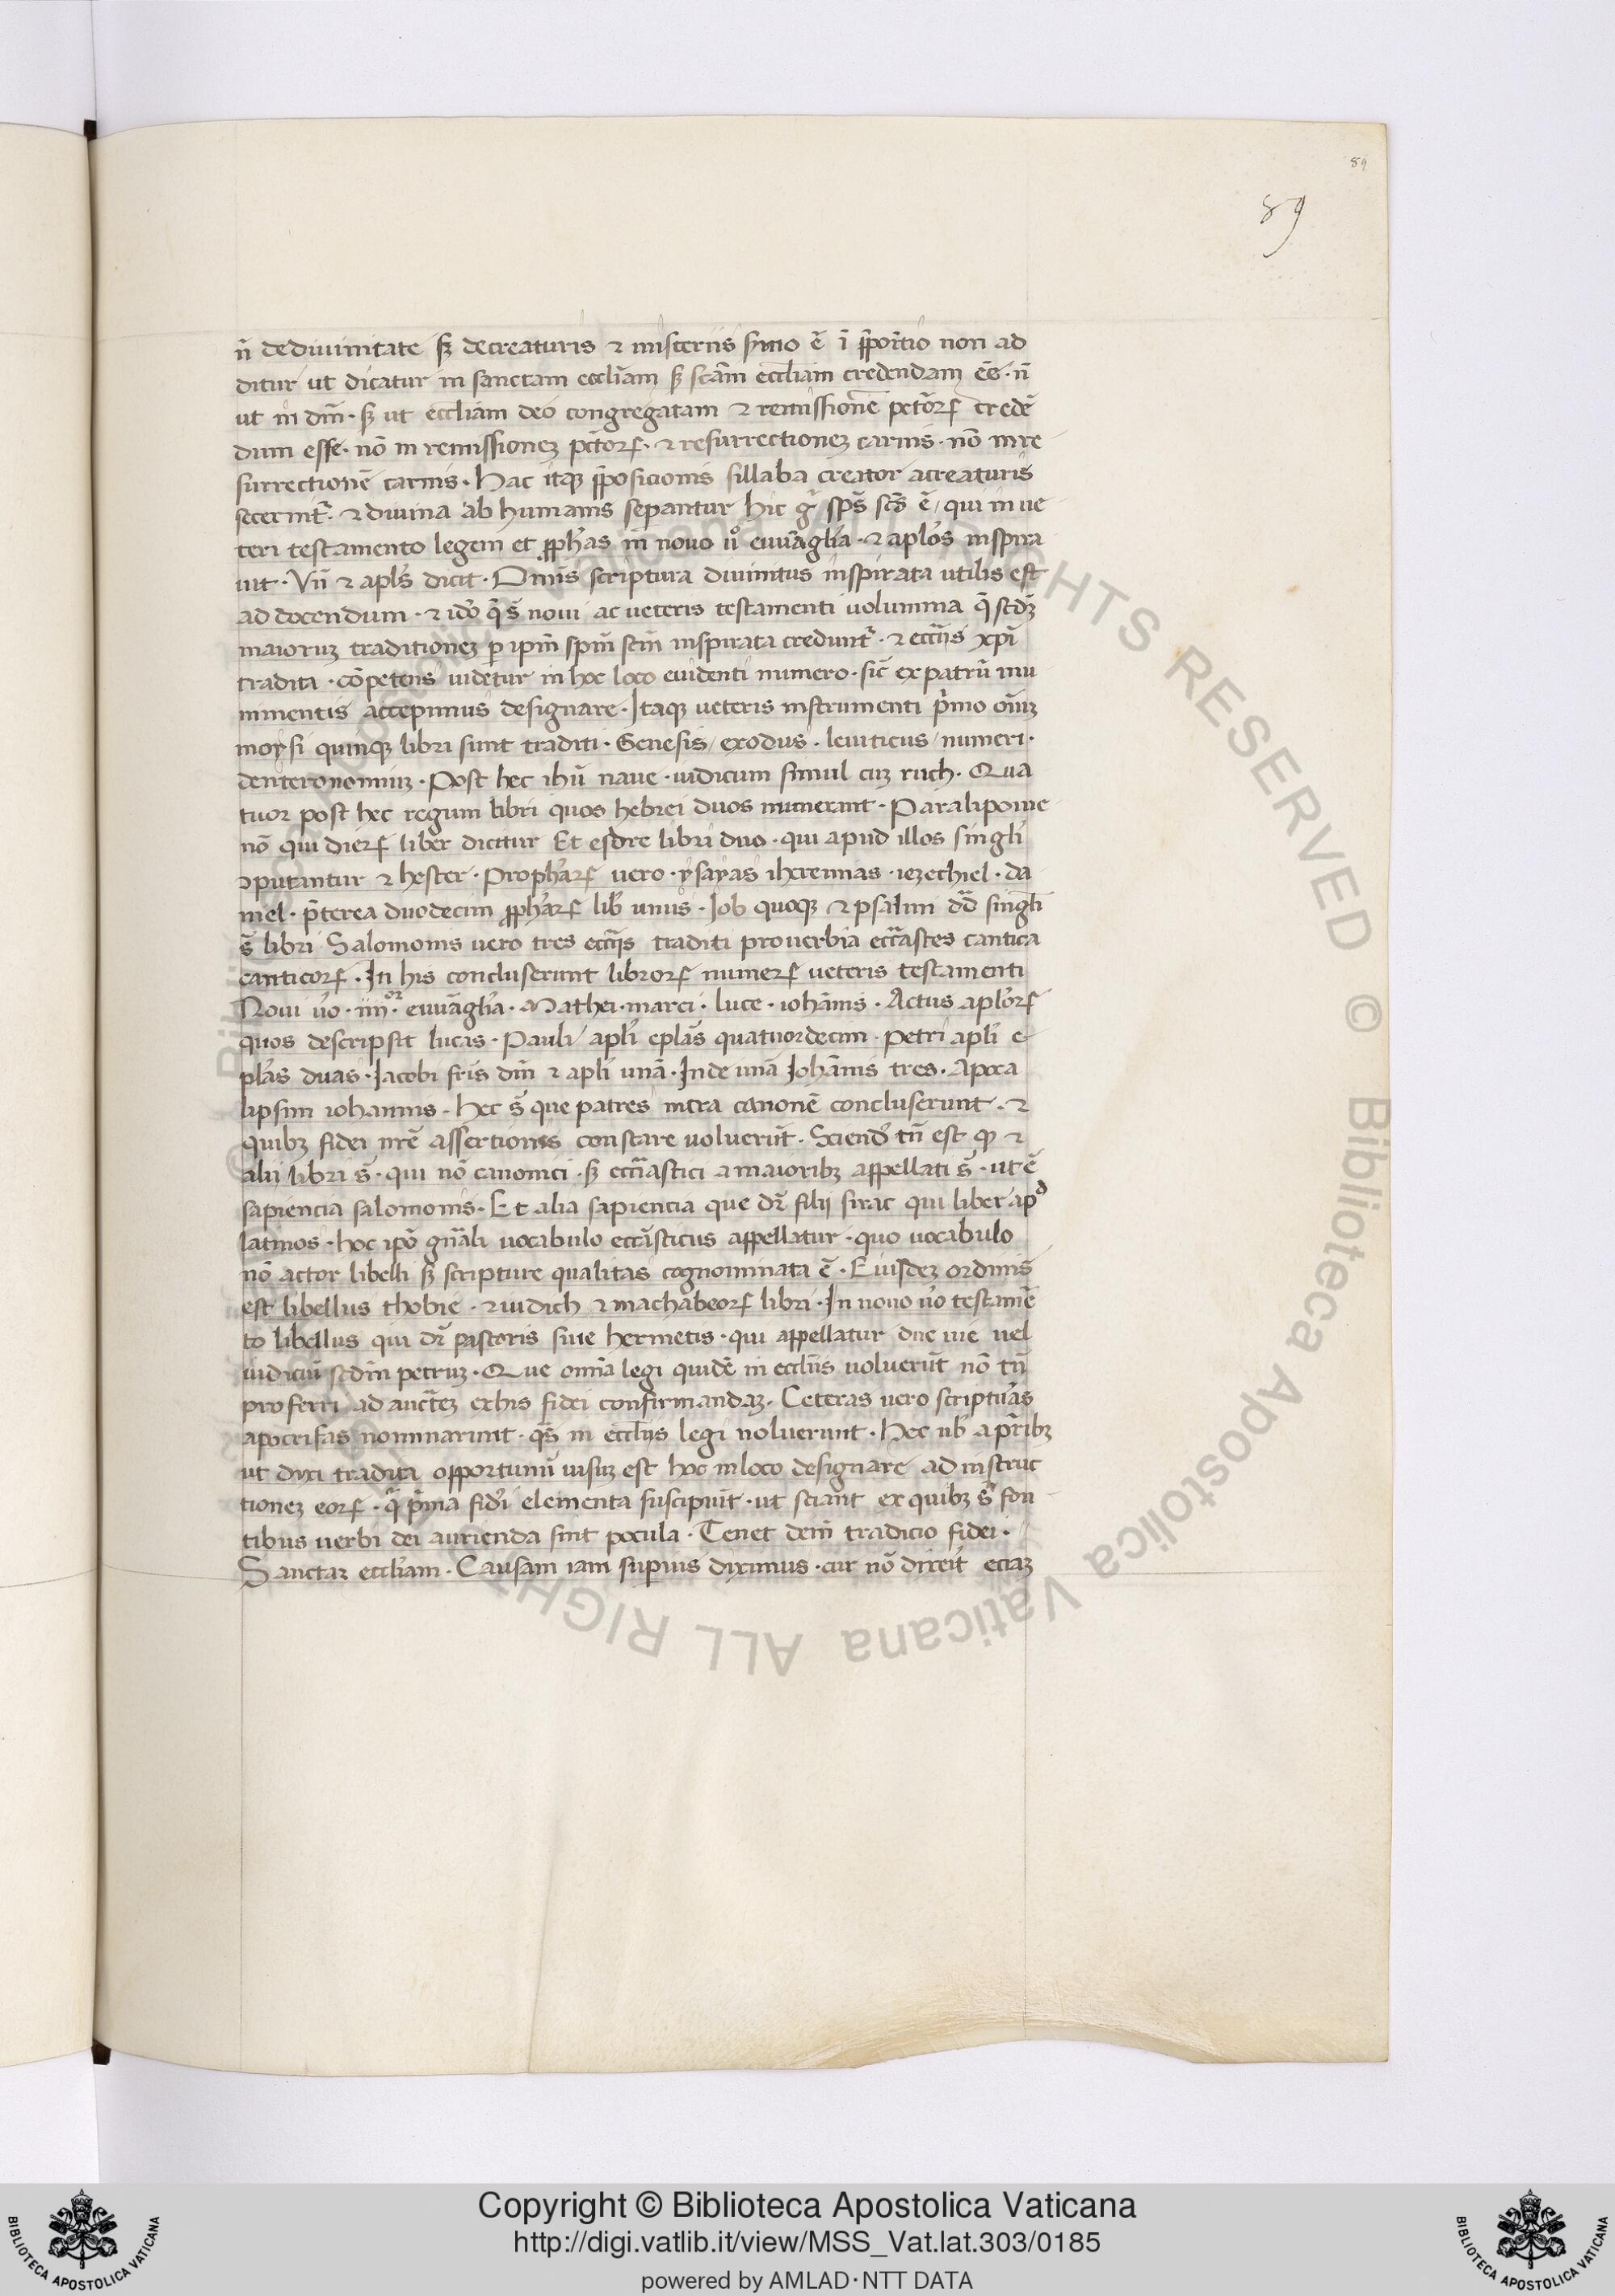 89
89
n̄ dediuinitate sꝫ decreaturis ⁊ misteriis smo ē ī p̄pōitio non ad
ditur ut dicatur in sanctam eccliam sꝫ scām eccliam credendam eē · n̄
ut in dm̄ · sꝫ ut eccliam deo congregatam ⁊ remissionē pctōꝝ credē
dum esse · nō in remissionem pctōꝝ · ⁊ resurrectionem carnis · nō in re
surrectionē carnis · Hac itaqꝫ p̄posicionis sillaba creator acreaturis
secernit᷑ · ⁊ diuina ab humanis sepantur hic gͦ sp̄s scs ē / qui in ue
teri testamento legem et ꝓph̄as in nouo uͦ euuāglia · ⁊ aplōs inspira
uit · Vn̄ ⁊ apls̄ dicit · Om̄is scriptura diuinitus inspirata utilis est
ad docendum · ⁊ idō q̄ s̄ noui ac ueteris testamenti uolumina q̄ scdꝫ
maiorum traditionem ꝑ ipm̄ spm̄ scm̄ inspirata credunt᷑ · ⁊ eccliis xpi
tradita · cōpetens uidetur in hoc loco euidenti numero · sic̄ ex patrū mu
nimentis accepimus designare · Itaqꝫ ueteris instrumenti pͥmo oīuꝫ
moysi quinqꝫ libri sunt traditi · Genesis / exodus · leuiticus / numeri ·
deuteronomiuꝫ · Post hec ihū naue · iudicum simul cuꝫ ruth · Qua
tuor post hec regum libri quos hebrei duos numerant · Paralipome
nō qui dieꝝ liber dicitur Et esdre libri duo · qui apud illos singli
ↄputantur ⁊ hester · Prophaꝝ uero · ysayas iheremias · iezechiel · da
niel · p̄terea duodecim ꝓphaꝝ lib̄ unus · Job quoqꝫ ⁊ psalmi dd̄ singli
s̄ libri Salomonis uero tres eccliis traditi prouerbia eccl̄astes cantica
canticoꝝ · In his concluserunt libroꝝ numeꝝ ueteris testamenti
Noui uͦo · iiii · or euuāglia · Mathei · marci · luce · iohānis · Actus aploꝝ
quos descripsit lucas · Pauli apli eplās quatuordecim · Petri apli e
plās duas · Jacobi fris dn̄i ⁊ apli unā · Inde unā Johānis tres · Apoca
lipsim iohannis · Hec s̄ que patres intra canonē concluserunt · ⁊
quibꝫ fidei nr̄e assertionis constare uoluerūt · Sciendͦ tn̄ est qꝫ ⁊
alii libri s̄ · qui nō canonici · sꝫ eccl̄astici a maioribꝫ appellati s̄ · ut ē
sapiencia salomonis · Et alia sapiencia que dr̄ filij sirac qui liber apᵈ
latinos · hoc ipō gn̄ali uocabulo eccl̄asticus appellatur · quo uocabulo
nō actor libelli sꝫ scripture qualitas cognominata ē · Eiusdeꝫ ordinis
est libellus thobie · ⁊ iudich ⁊ machabeoꝝ libri · In nouo uͦo testamē
to libellus qui dr̄ pastoris siue hermetis · qui appellatur due uie uel
iudiciū scdm̄ petruꝫ · Que omīa legi quidē in eccliis uoluerūt nō tn̄
proferri ad auctēꝫ exhis fidei confirmandaꝫ · Ceteras uero scripturas
apocrifas nominarunt · qͣs in eccliis legi noluerunt · Hec nb̄ a prībꝫ
ut dixi tradita opportunū uisuꝫ est hoc inloco designare ad instruc
tionem eoꝝ · q̄ pͥma fidei elementa suscipiūt · ut sciant ex quibꝫ s̄ fon
tibus uerbi dei aurienda sint pocula · Tenet dein̄ tradicio fidei ·
Sanctaꝫ eccliam · Causam iam superius diximus · cur nō dixeīt eciaꝫ
© Biblioteca Apostolica Vaticana ALL RIGHTS RESERVED
© Biblioteca Apostolica Vaticana ALL RIGHTS RESERVED
Copyright © Biblioteca Apostolica Vaticana
http://digi.vatlib.it/view/MSS_Vat.lat.303/0185
powered by AMLAD · NTT DATA
BIBLIOTECA APOSTOLICA VATICANA
BIBLIOTECA APOSTOLICA VATICANA